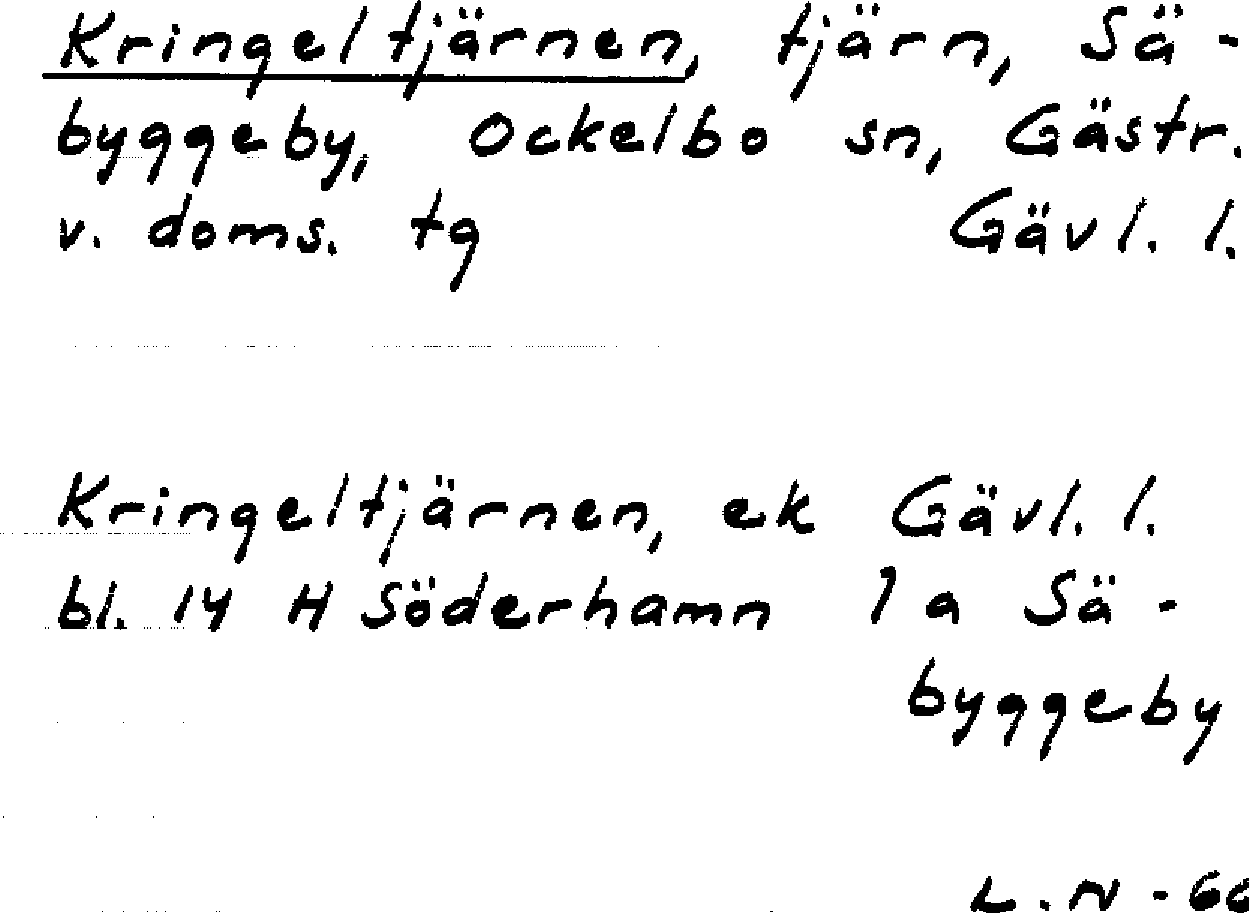 Kringeltjärnen, tjärn, Sä-
byggeby, Ockelbo sn, Gästr.
v. doms. tg Gävl. l.
Kringeltjärnen, ek Gävl. l.
bl. 14 H Söderhamn 1 a Sä-
byggeby
L. N - 66